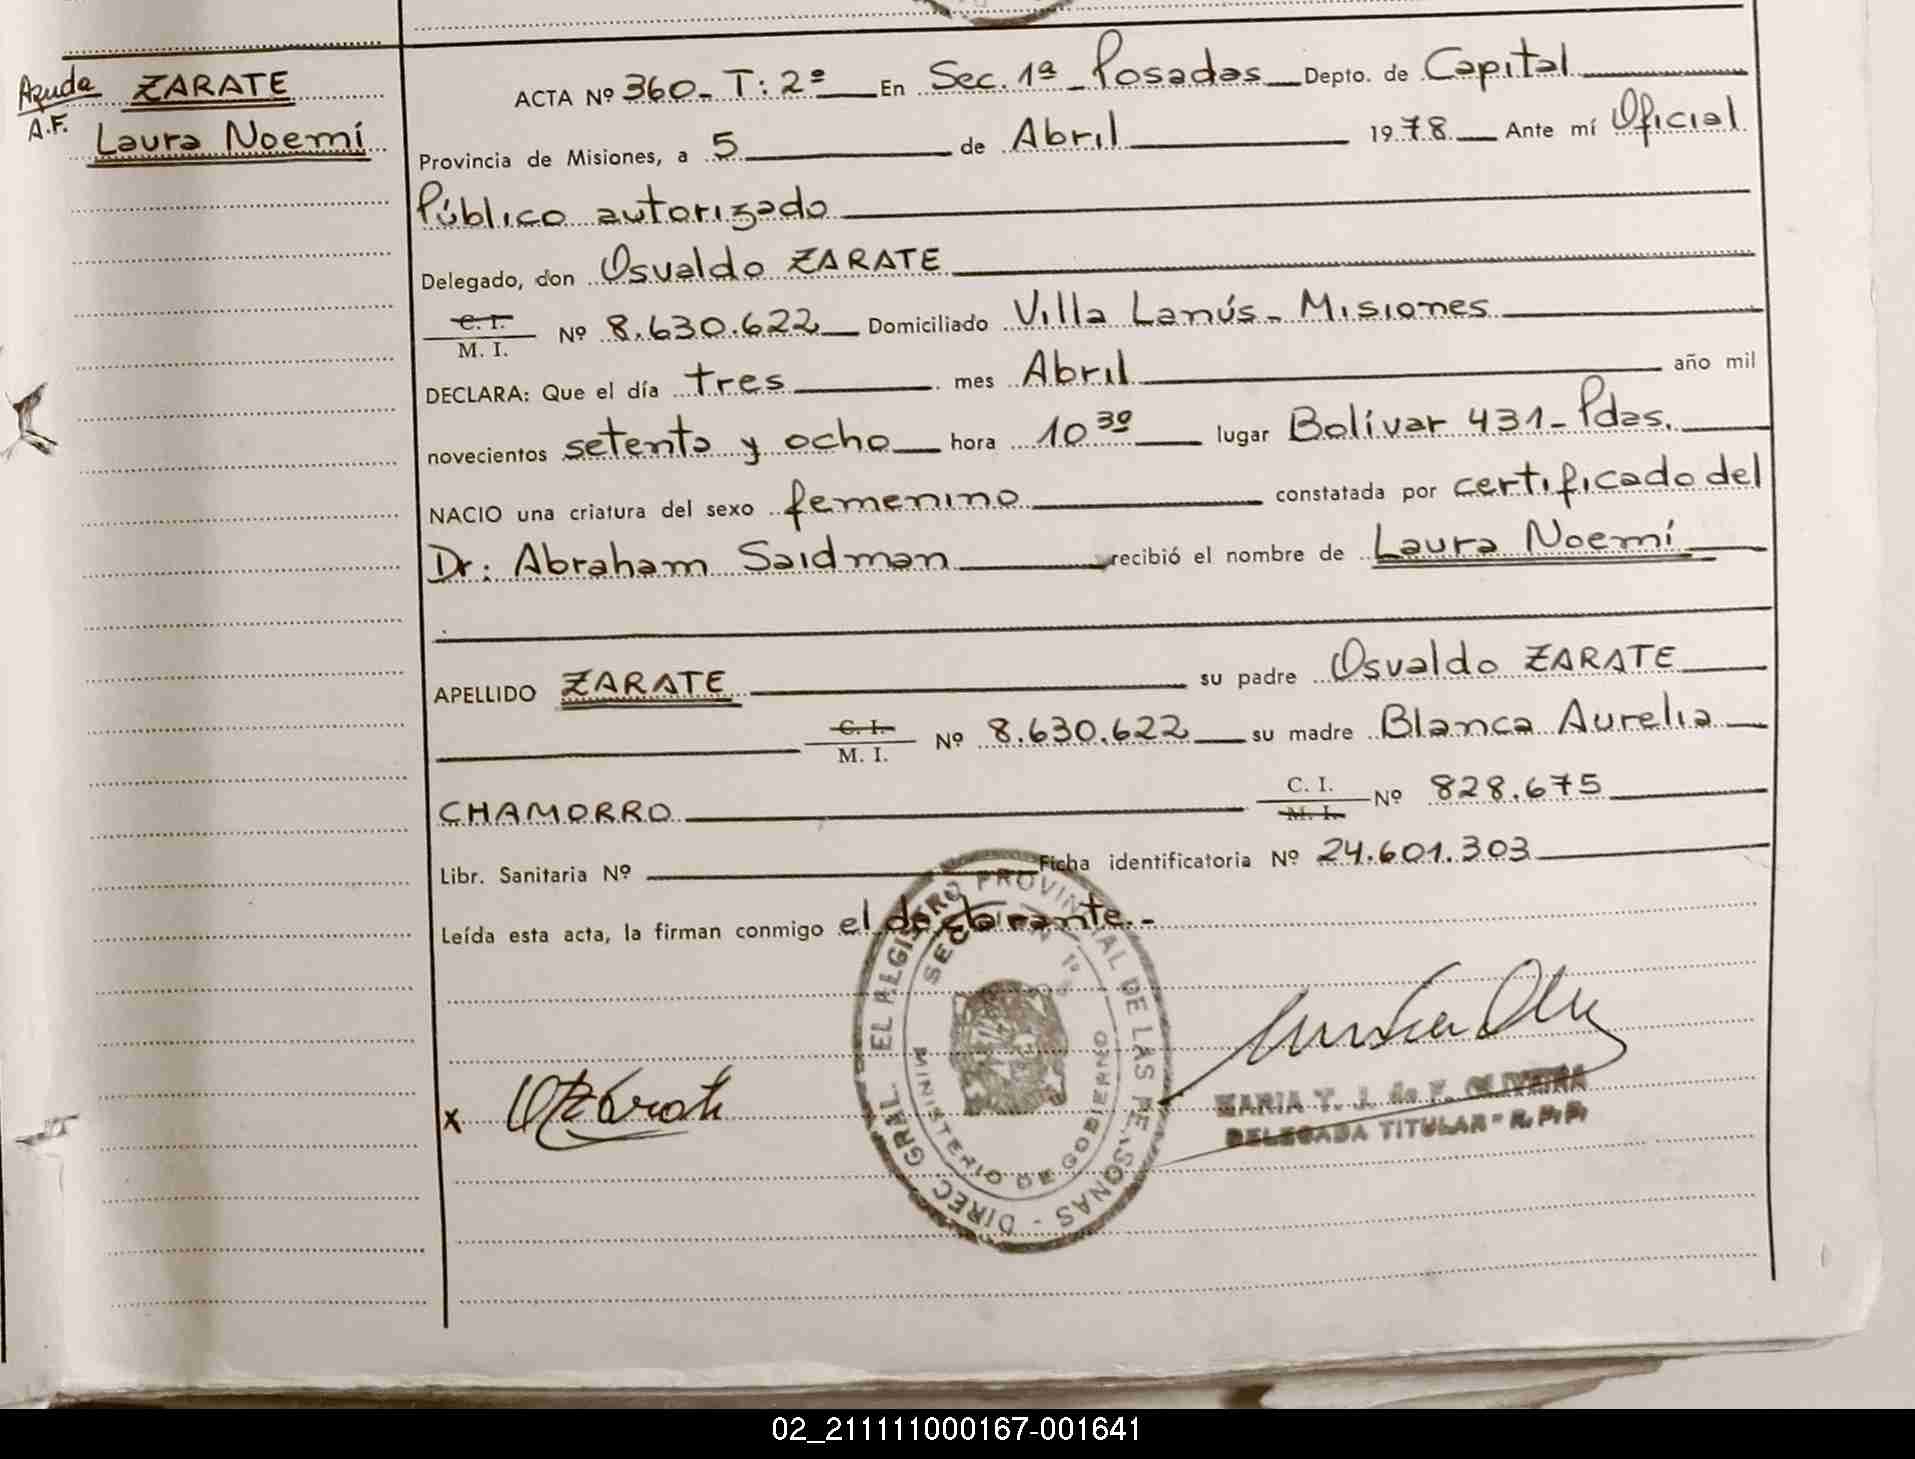 Ayuda
A.F.
ZARATE
Laura Noemí
ACTA Nº 360_ T: 2º En Sec. 1ª _ Posadas Depto. de Capital
Provincia de Misiones, a 5 de Abril 1978 Ante mí Oficial
Público autorizado
Delegado, don Osvaldo ZARATE
C. I.
M. I. Nº 8.630.622 Domiciliado Villa Lanús _ Misiones
DECLARA: Que el día tres mes Abril año mil
novecientos setenta y ocho hora 10 30 lugar Bolívar 431 _ Pdas.
NACIO una criatura del sexo femenino constatada por certificado del
Dr: Abraham Saidman recibió el nombre de Laura Noemí
APELLIDO ZARATE su padre Osvaldo ZARATE
C. I.
M. I. Nº 8.630.622 su madre Blanca Aurelia
CHAMORRO C. I.
M. I. Nº 828.675
Libr. Sanitaria Nº Ficha identificatoria Nº 24.601.303
Leída esta acta, la firman conmigo el declarante.-
DIREC GRAL. PROVINCIAL DE LAS PERSONAS -
MINISTERIO DE GOBIERNO
x
MARIA T. J. de F. OLIVEIRA
DELEGADA TITULAR - R. P. P.
02_211111000167-001641